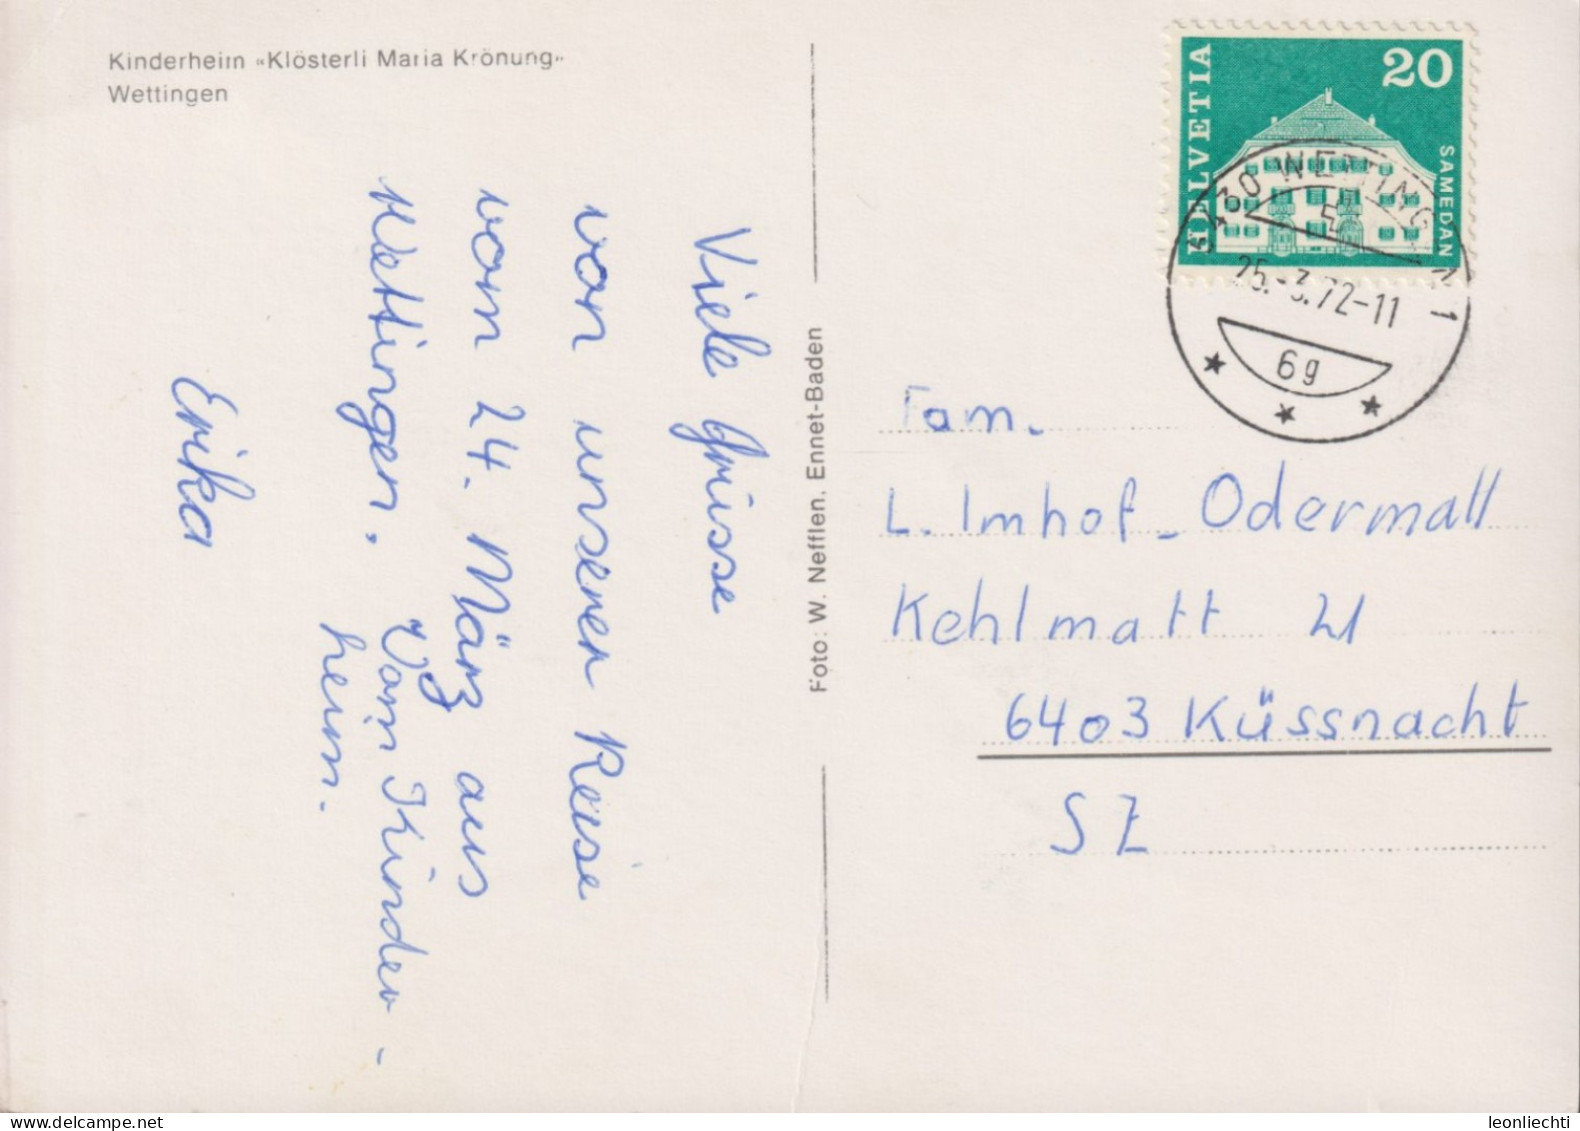 Kinderheim «Klösterli Maria Krönung»
Wettingen
Viele Grüsse
von unserer Reise
vom 24. März aus
Wettingen. Vom Kinder-
heim.
Erika
Foto: W. Nefflen, Ennet-Baden
HELVETIA
20
SAMEDAN
5430 WETTINGEN 1
25.-3.72-11
6g
Fam.
L. Imhof-Odermatt
Kehlmatt 21
6403 Küssnacht
SZ
leonliechti